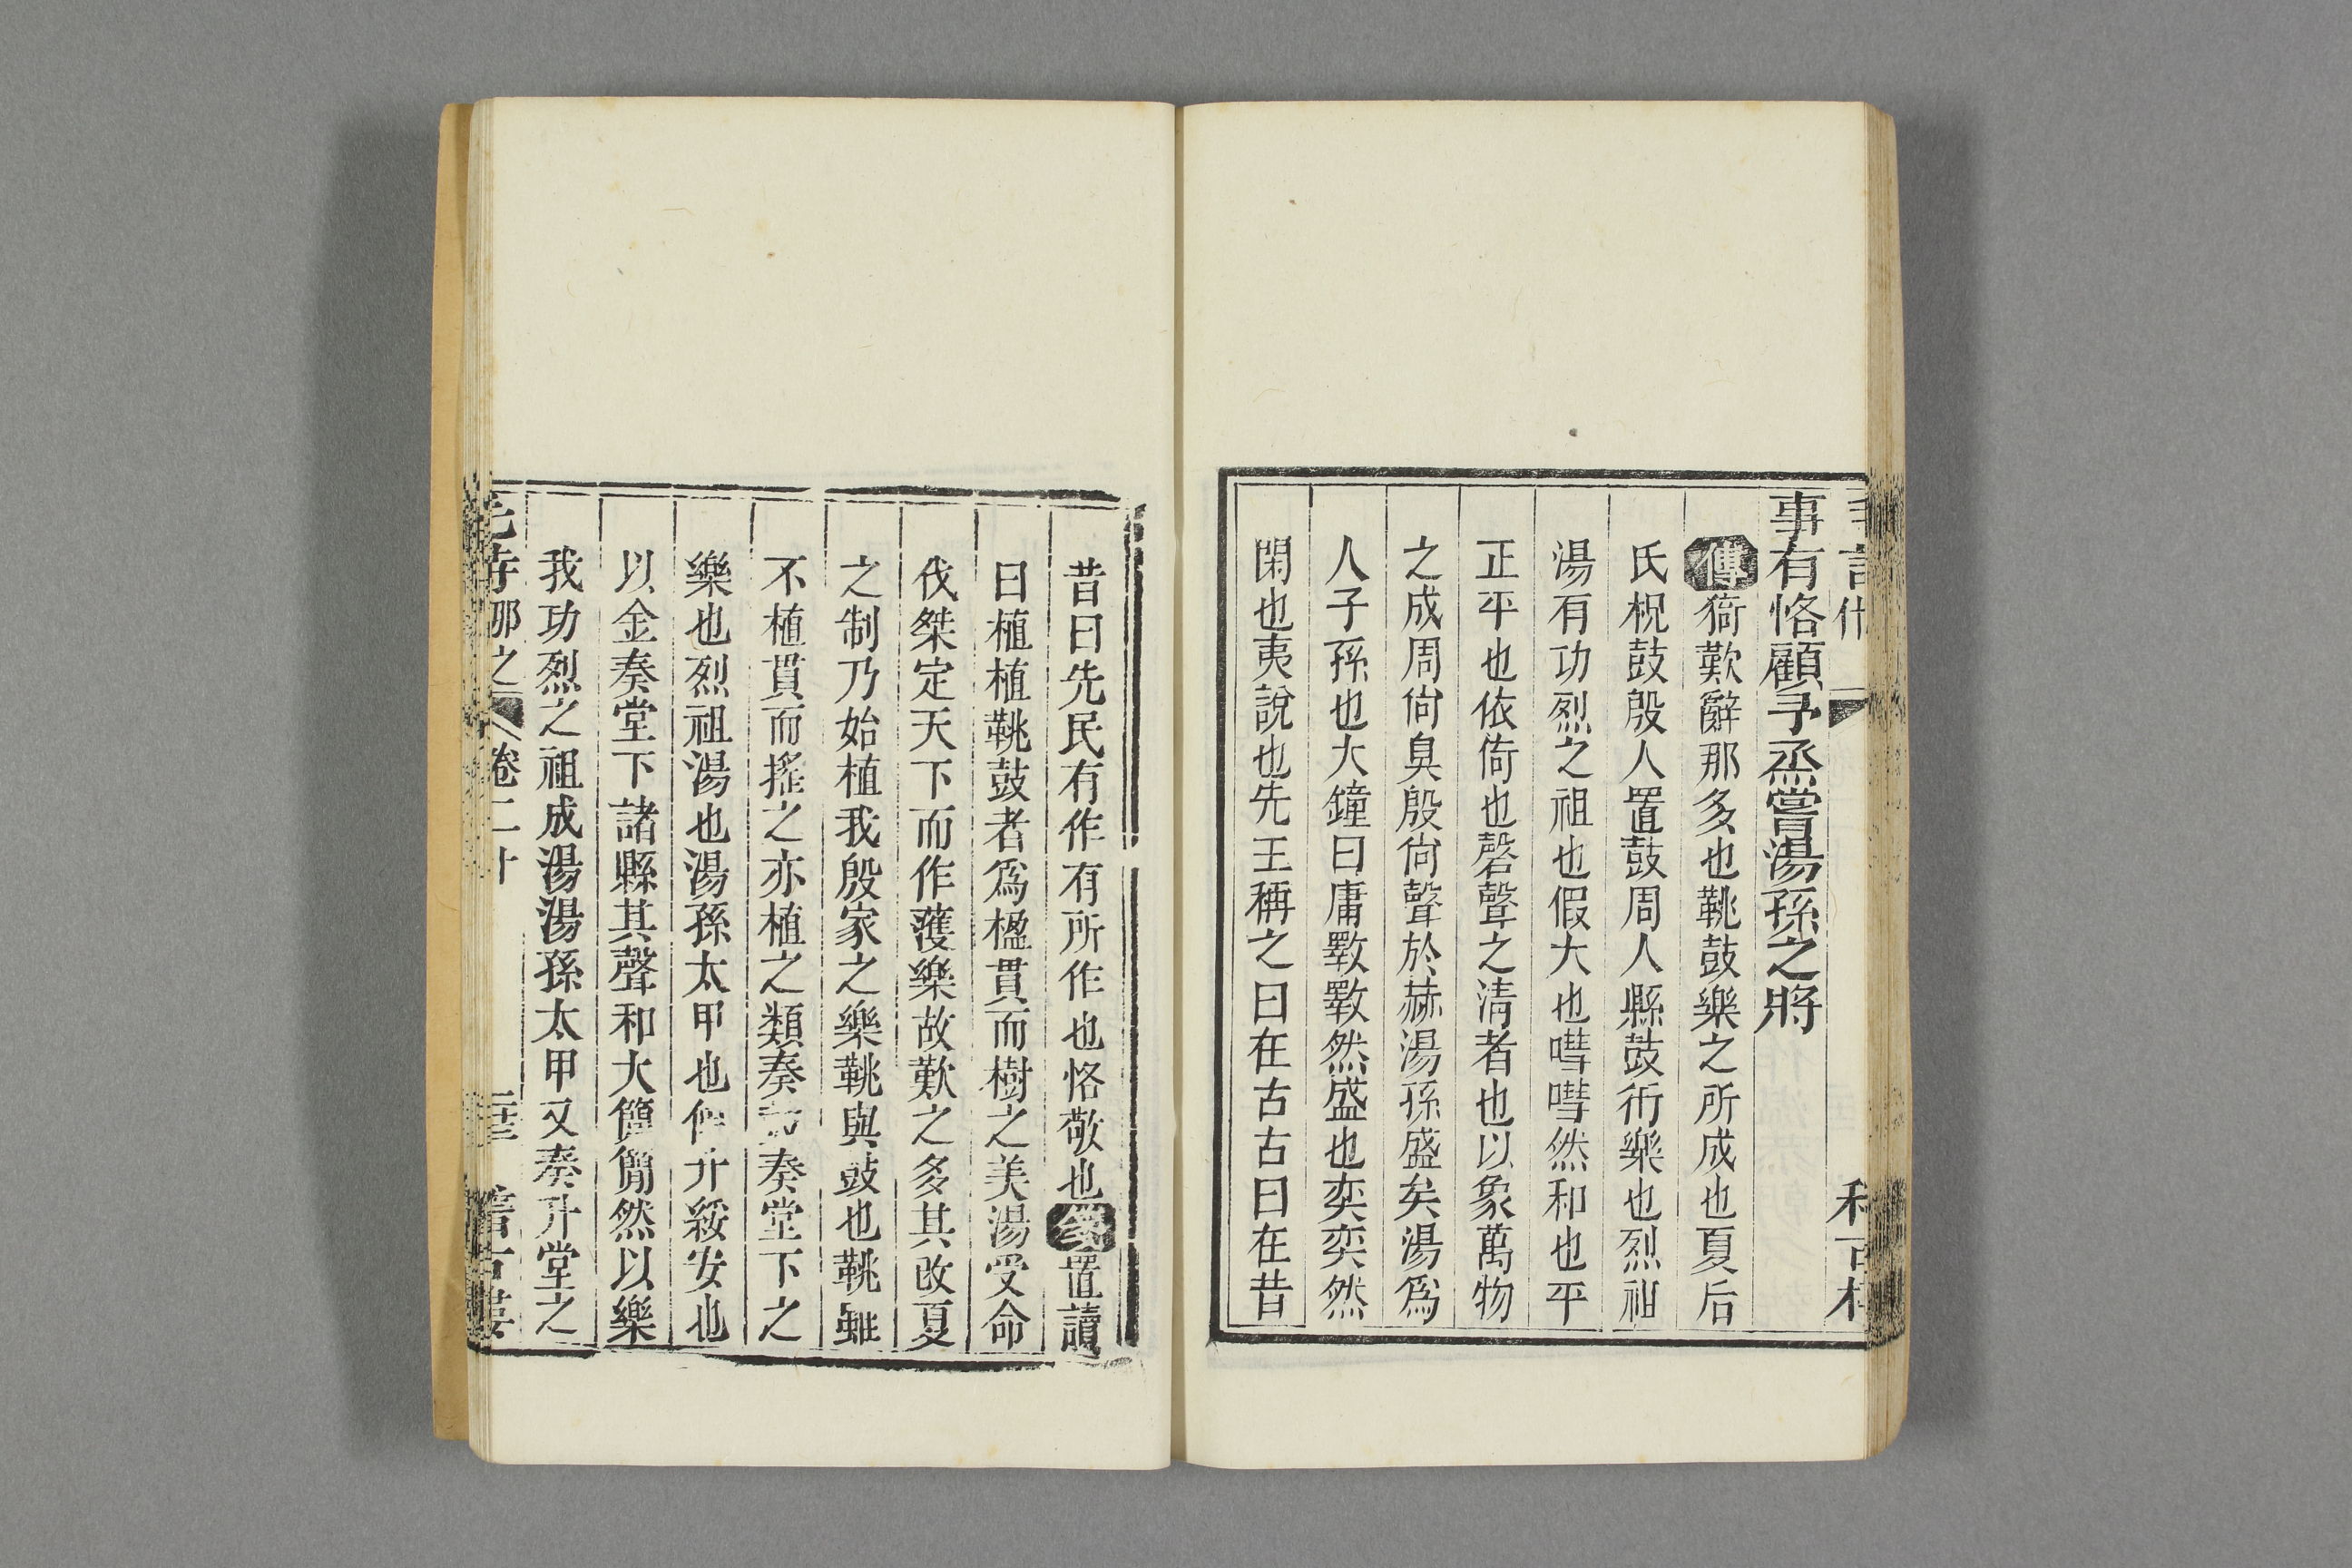 事有恪顧予烝嘗湯孫之將
傳猗歎辭那多也鞉鼓樂之所成也夏后
氏梲鼓殷人置鼓周人縣鼓衎樂也烈祖
湯有功烈之祖也假大也嘒嘒然和也平
正平也依倚也磬聲之淸者也以象萬物
之成周尙臭殷尙聲於赫湯孫盛矣湯爲
人子孫也大鐘曰庸斁斁然盛也奕奕然
閑也夷說也先王稱之曰在古古曰在昔
昔曰先民有作有所作也恪敬也箋置讀
曰植植鞉鼓者爲楹貫而樹之美湯受命
伐桀定天下而作濩樂故歎之多其改夏
之制乃始植我殷家之樂鞉與鼓也鞉雖
不植貫而搖之亦植之類奏奏堂下之
樂也烈祖湯也湯孫太甲也升綏安也
以金奏堂下諸縣其聲和大簡簡然以樂
我功烈之祖成湯湯孫太甲又奏升堂之
那之 卷二十